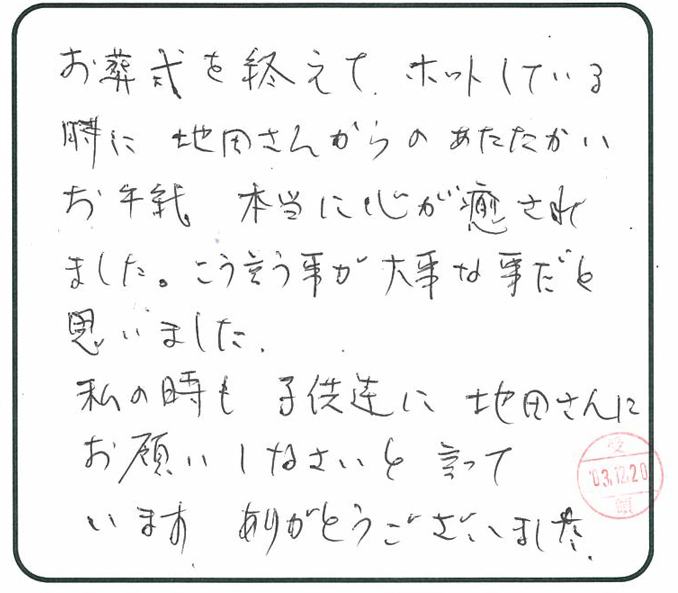 お葬式を終えて、ホットしている
時に 地田さんからの あたたかい
お手紙、本当に心が癒され
ました。こう言う事が大事な事だと
思いました。
私の時も 子供達に 地田さんに
お願いしなさいと 言って
います ありがとうございました。
受
'03.12.20
領